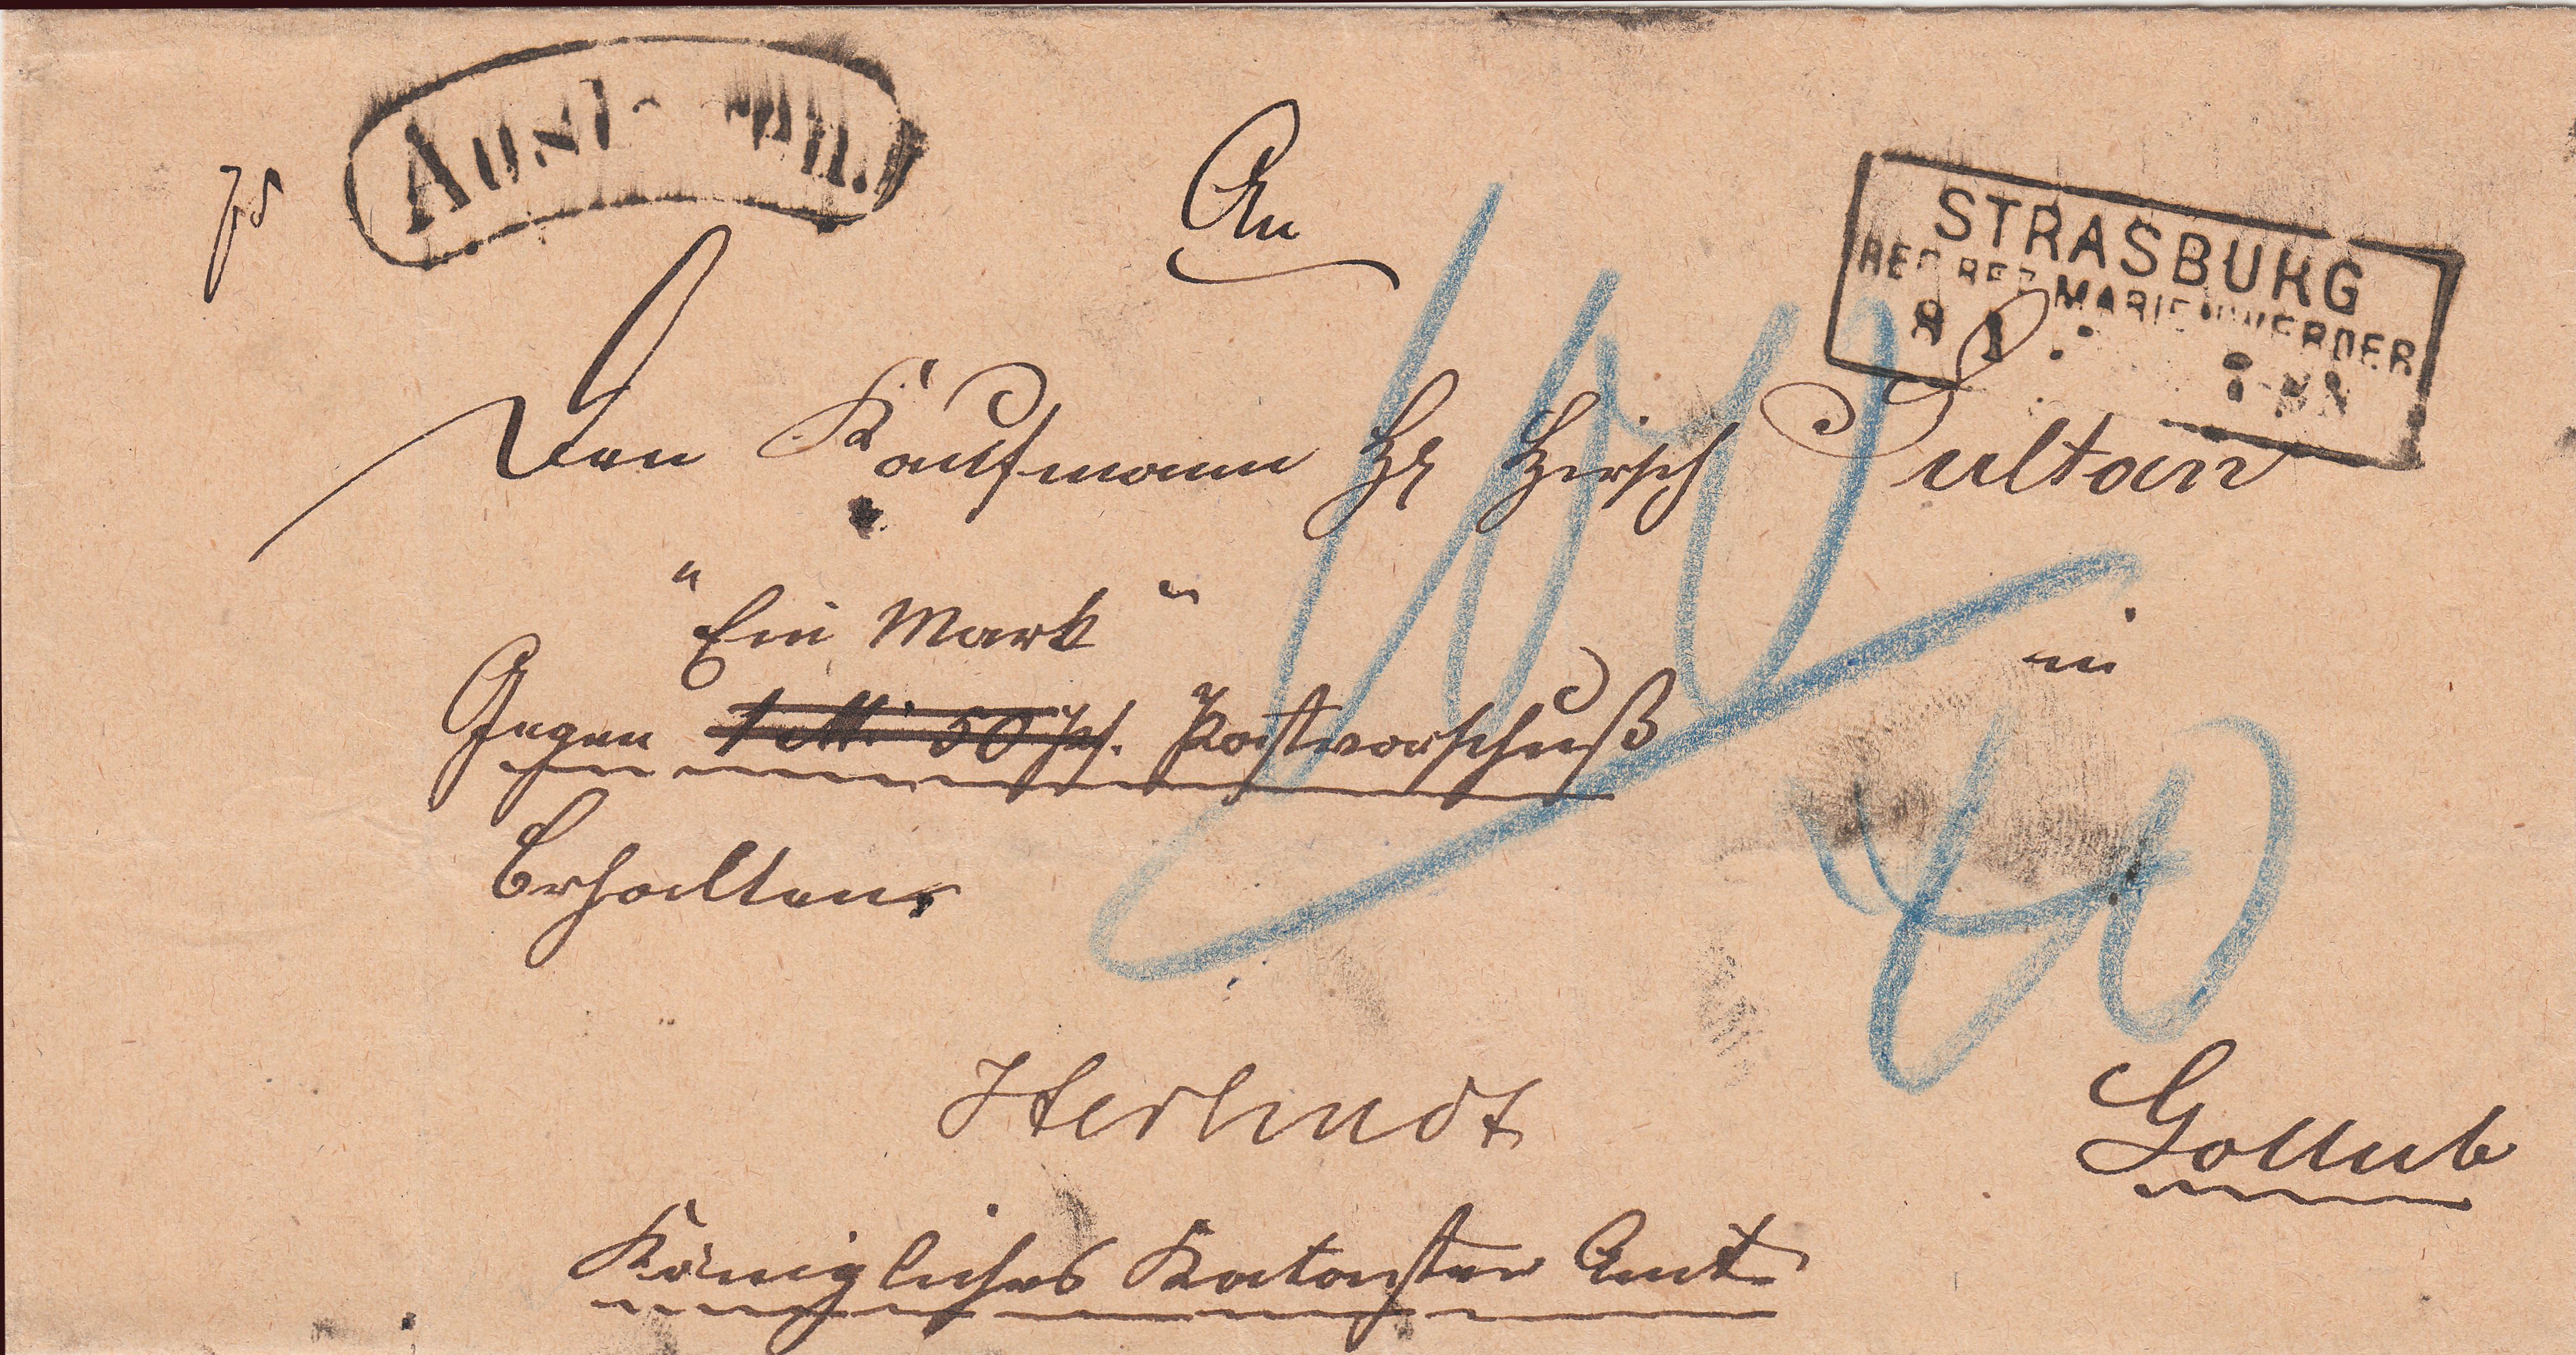 An
STRASBURG
REG BEZ MARIENWERDER
8 1
7-8 N
Den Kaufmann Hr Hirsch Sultan
"Ein Mark"
in
Gegen 1 M. 50 Pf. Postvorschuß
100
40
Erhalten
Gollub
Königliches Kataster Amt